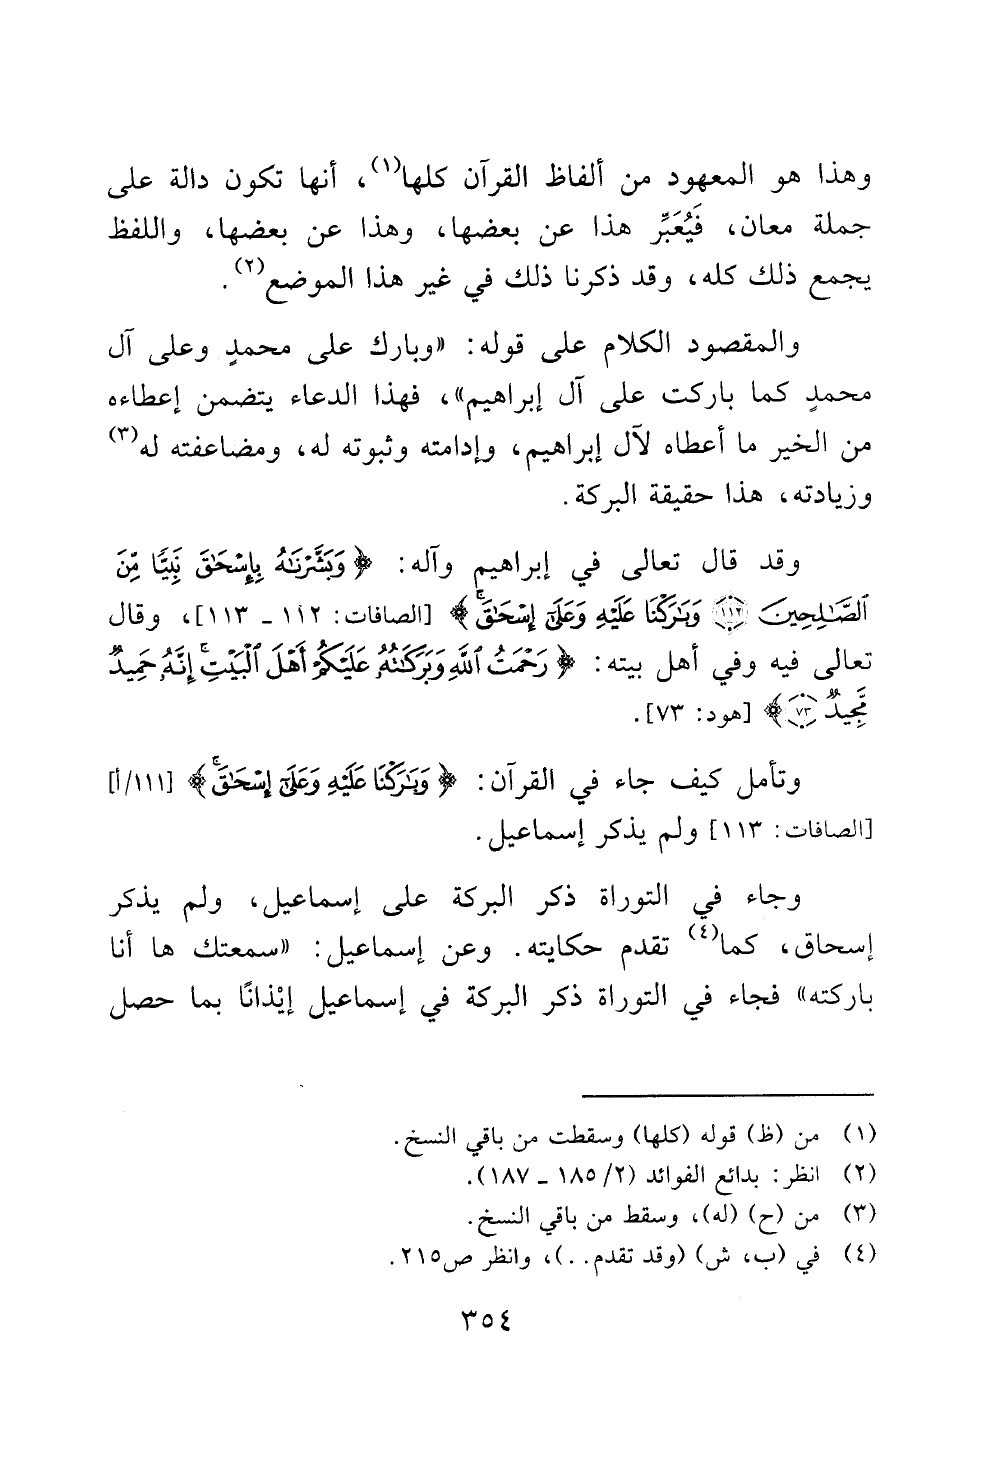 وهذا هو المعهود من ألفاظ القرآن كلها(١)، أنها تكون دالة على
جملة معان، فَيُعَبِّر هذا عن بعضها، وهذا عن بعضها، واللفظ
يجمع ذلك كله، وقد ذكرنا ذلك في غير هذا الموضع(٢).
والمقصود الكلام على قوله: «وبارك على محمدٍ وعلى آل
محمدٍ كما باركت على آل إبراهيم»، فهذا الدعاء يتضمن إعطاءه
من الخير ما أعطاه لآل إبراهيم، وإدامته وثبوته له، ومضاعفته له(٣)
وزيادته، هذا حقيقة البركة.
وقد قال تعالى في إبراهيم وآله: ﴿وَبَشَّرْنَٰهُ بِإِسْحَٰقَ نَبِيًّا مِّنَ
ٱلصَّٰلِحِينَ ١١٢ وَبَٰرَكْنَا عَلَيْهِ وَعَلَىٰٓ إِسْحَٰقَ ۚ﴾ [الصافات: ١١٢ ـ ١١٣]، وقال
تعالى فيه وفي أهل بيته: ﴿رَحْمَتُ ٱللَّهِ وَبَرَكَٰتُهُۥ عَلَيْكُمْ أَهْلَ ٱلْبَيْتِ ۚ إِنَّهُۥ حَمِيدٌ
مَّجِيدٌ ٧٣﴾ [هود: ٧٣].
وتأمل كيف جاء في القرآن: ﴿وَبَٰرَكْنَا عَلَيْهِ وَعَلَىٰٓ إِسْحَٰقَ ۚ﴾ [١١١/أ]
[الصافات: ١١٣] ولم يذكر إسماعيل.
وجاء في التوراة ذكر البركة على إسماعيل، ولم يذكر
إسحاق، كما(٤) تقدم حكايته. وعن إسماعيل: «سمعتك ها أنا
باركته» فجاء في التوراة ذكر البركة في إسماعيل إيْذانًا بما حصل
(١) من (ظ) قوله (كلها) وسقطت من باقي النسخ.
(٢) انظر: بدائع الفوائد (٢/ ١٨٥ ـ ١٨٧).
(٣) من (ح) (له)، وسقط من باقي النسخ.
(٤) في (ب، ش) (وقد تقدم..)، وانظر ص٢١٥.
٣٥٤